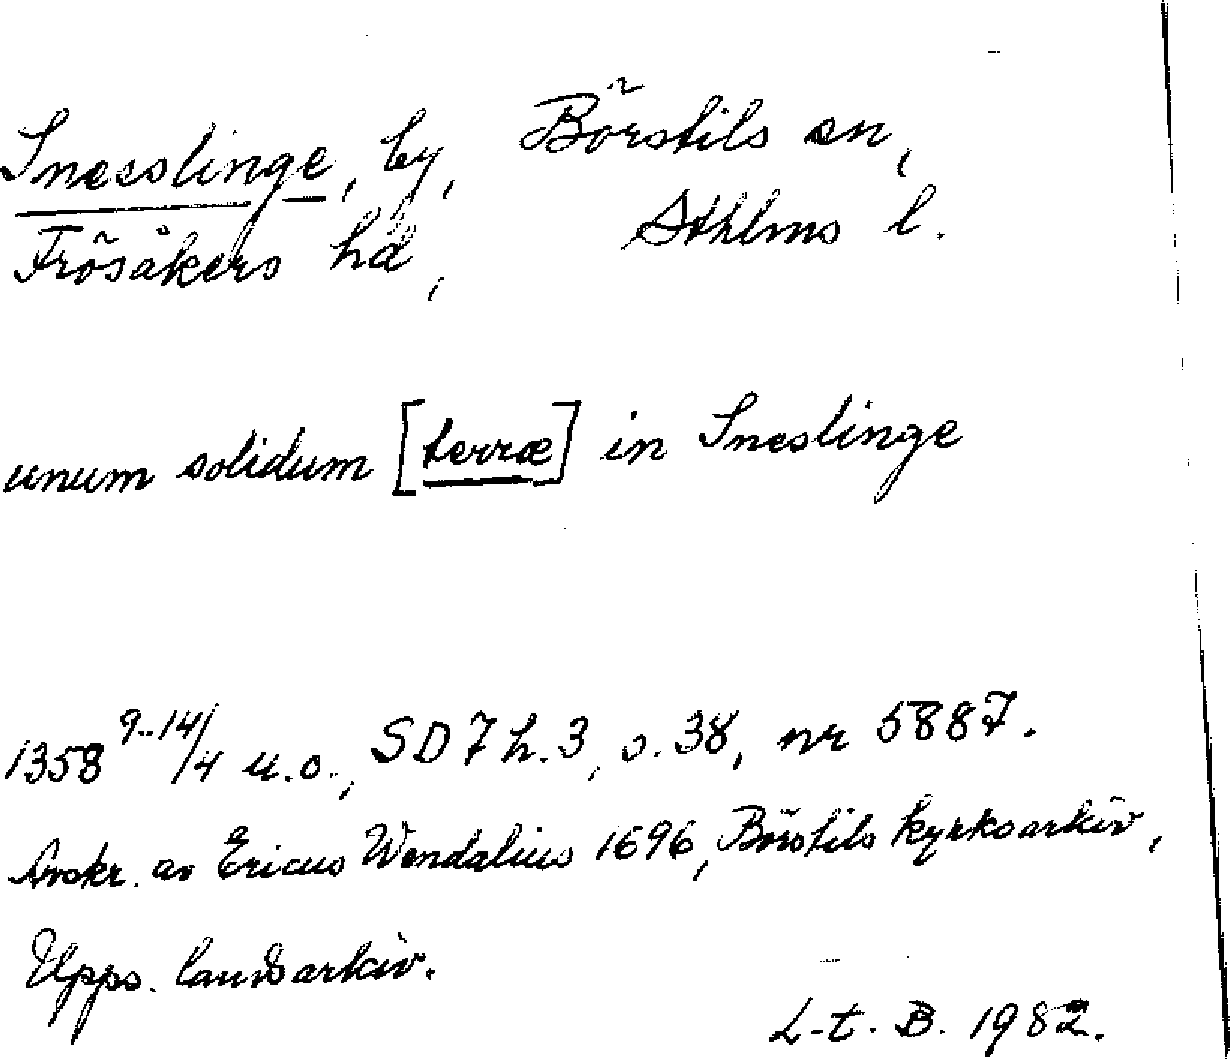 Snesslinge, by, Börstils sn,
Frösåkers hd, Sthlms l.
unum solidum [terræ] in Sneslinge
1358 9..14/4 u.o., SD 7 h. 3, s. 38, nr 5887.
Avskr. av Ericus Wendalius 1696, Börstils kyrkoarkiv,
Upps. landsarkiv.
L-t. B. 1982.